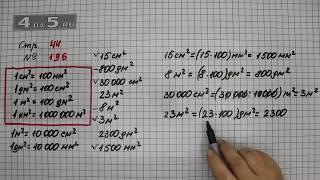 4DA5.RU
Стр 44
№ 196
1 см² = 100 мм²
1 дм² = 100 см²
1 м² = 100 дм²
1 км² = 1000 000 м²
1 м² = 10 000 см²
1 дм² = 10 000 мм²
15 см²
800 дм²
30 000 см²
23 м²
8 м²
3 м²
2300 дм²
1500 мм²
15 см² = (15·100) мм² = 1500 мм²
8 м² = (8·100) дм² = 800 дм²
30 000 см² = (30 000:10000) м² = 3 м²
23 м² = (23·100) дм² = 2300